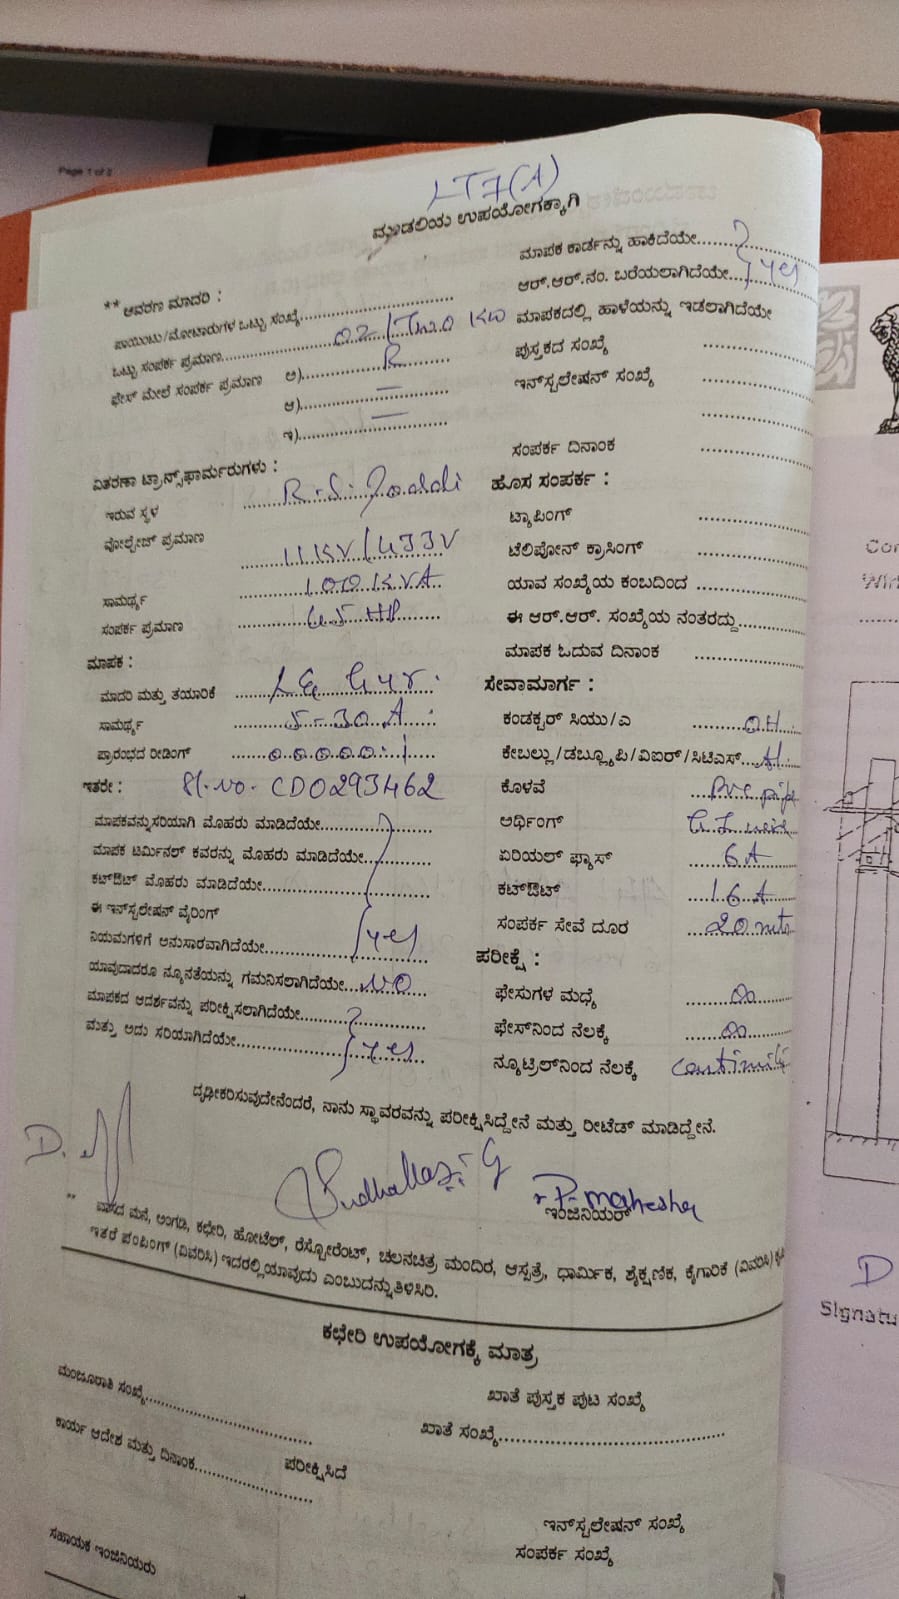 Page 1 of 2
LT7(A)
ಮುಡಲಿಯ ಉಪಯೋಗಕ್ಕಾಗಿ
** ಆವರಣ ಮಾದರಿ :
ಪಾಯಿಂಟು/ಮೋಟಾರುಗಳ ಒಟ್ಟು ಸಂಖ್ಯೆ
ಒಟ್ಟು ಸಂಪರ್ಕ ಪ್ರಮಾಣ 02/Two KW
ಫೇಸ್ ಮೇಲೆ ಸಂಪರ್ಕ ಪ್ರಮಾಣ ಅ) R
ಆ) —
ಇ) —
ವಿತರಣಾ ಟ್ರಾನ್ಸ್‌ಫಾರ್ಮರುಗಳು :
ಇರುವ ಸ್ಥಳ R.S. Doddi
ವೋಲ್ಟೇಜ್ ಪ್ರಮಾಣ 11KV/433V
ಸಾಮರ್ಥ್ಯ 100KVA
ಸಂಪರ್ಕ ಪ್ರಮಾಣ 45 HP
ಮಾಪಕ :
ಮಾದರಿ ಮತ್ತು ತಯಾರಿಕೆ L&G
ಸಾಮರ್ಥ್ಯ 5-30A
ಪ್ರಾರಂಭದ ರೀಡಿಂಗ್ 00000.1
ಇತರೇ : Sl.No. CD0293462
ಮಾಪಕವನ್ನು ಸರಿಯಾಗಿ ಮೊಹರು ಮಾಡಿದೆಯೇ
ಮಾಪಕ ಟರ್ಮಿನಲ್ ಕವರನ್ನು ಮೊಹರು ಮಾಡಿದೆಯೇ
ಕಟ್‌ಔಟ್ ಮೊಹರು ಮಾಡಿದೆಯೇ
ಈ ಇನ್‌ಸ್ಟಲೇಷನ್ ವೈರಿಂಗ್
ನಿಯಮಗಳಿಗೆ ಅನುಸಾರವಾಗಿದೆಯೇ yes
ಯಾವುದಾದರೂ ನ್ಯೂನತೆಯನ್ನು ಗಮನಿಸಲಾಗಿದೆಯೇ NO
ಮಾಪಕದ ಆದರ್ಶವನ್ನು ಪರೀಕ್ಷಿಸಲಾಗಿದೆಯೇ
ಮತ್ತು ಅದು ಸರಿಯಾಗಿದೆಯೇ yes
ಮಾಪಕ ಕಾರ್ಡನ್ನು ಹಾಕಿದೆಯೇ
ಆರ್.ಆರ್.ನಂ. ಬರೆಯಲಾಗಿದೆಯೇ yes
ಮಾಪಕದಲ್ಲಿ ಹಾಳೆಯನ್ನು ಇಡಲಾಗಿದೆಯೇ
ಪುಸ್ತಕದ ಸಂಖ್ಯೆ
ಇನ್‌ಸ್ಟಲೇಷನ್ ಸಂಖ್ಯೆ
ಸಂಪರ್ಕ ದಿನಾಂಕ
ಹೊಸ ಸಂಪರ್ಕ :
ಟ್ಯಾಪಿಂಗ್
ಟೆಲಿಪೋನ್ ಕ್ರಾಸಿಂಗ್
ಯಾವ ಸಂಖ್ಯೆಯ ಕಂಬದಿಂದ
ಈ ಆರ್.ಆರ್. ಸಂಖ್ಯೆಯ ನಂತರದ್ದು
ಮಾಪಕ ಓದುವ ದಿನಾಂಕ
ಸೇವಾಮಾರ್ಗ :
ಕಂಡಕ್ಟರ್ ಸಿಯು/ಎ OH
ಕೇಬಲ್ಲು/ಡಬ್ಲ್ಯೂಪಿ/ವಿಐರ್/ಸಿಟಿಎಸ್ Al
ಕೊಳವೆ PVC pipe
ಅರ್ಥಿಂಗ್ G.I.
ಏರಿಯಲ್ ಫ್ಯೂಸ್ 6A
ಕಟ್‌ಔಟ್ 16A
ಸಂಪರ್ಕ ಸೇವೆ ದೂರ 20 mts
ಪರೀಕ್ಷೆ :
ಫೇಸುಗಳ ಮಧ್ಯೆ ∞
ಫೇಸ್‌ನಿಂದ ನೆಲಕ್ಕೆ ∞
ನ್ಯೂಟ್ರಲ್‌ನಿಂದ ನೆಲಕ್ಕೆ
ದೃಢೀಕರಿಸುವುದೇನೆಂದರೆ, ನಾನು ಸ್ಥಾವರವನ್ನು ಪರೀಕ್ಷಿಸಿದ್ದೇನೆ ಮತ್ತು ರೀಟೆಡ್ ಮಾಡಿದ್ದೇನೆ.
P. mahesha
ಇಂಜಿನಿಯರ್
** ವಾಸದ ಮನೆ, ಅಂಗಡಿ, ಕಛೇರಿ, ಹೋಟೆಲ್, ರೆಸ್ಟೋರೆಂಟ್, ಚಲನಚಿತ್ರ ಮಂದಿರ, ಆಸ್ಪತ್ರೆ, ಧಾರ್ಮಿಕ, ಶೈಕ್ಷಣಿಕ, ಕೈಗಾರಿಕೆ (ವಿವರಿಸಿ)
ಇತರೆ ಪಂಪಿಂಗ್ (ವಿವರಿಸಿ) ಇದರಲ್ಲಿಯಾವುದು ಎಂಬುದನ್ನು ತಿಳಿಸಿರಿ.
ಕಛೇರಿ ಉಪಯೋಗಕ್ಕೆ ಮಾತ್ರ
ಮಂಜೂರಾತಿ ಸಂಖ್ಯೆ
ಖಾತೆ ಪುಸ್ತಕ ಪುಟ ಸಂಖ್ಯೆ
ಖಾತೆ ಸಂಖ್ಯೆ
ಕಾರ್ಯ ಆದೇಶ ಮತ್ತು ದಿನಾಂಕ
ಪರೀಕ್ಷಿಸಿದೆ
ಇನ್‌ಸ್ಟಲೇಷನ್ ಸಂಖ್ಯೆ
ಸಂಪರ್ಕ ಸಂಖ್ಯೆ
ಸಹಾಯಕ ಇಂಜಿನಿಯರು